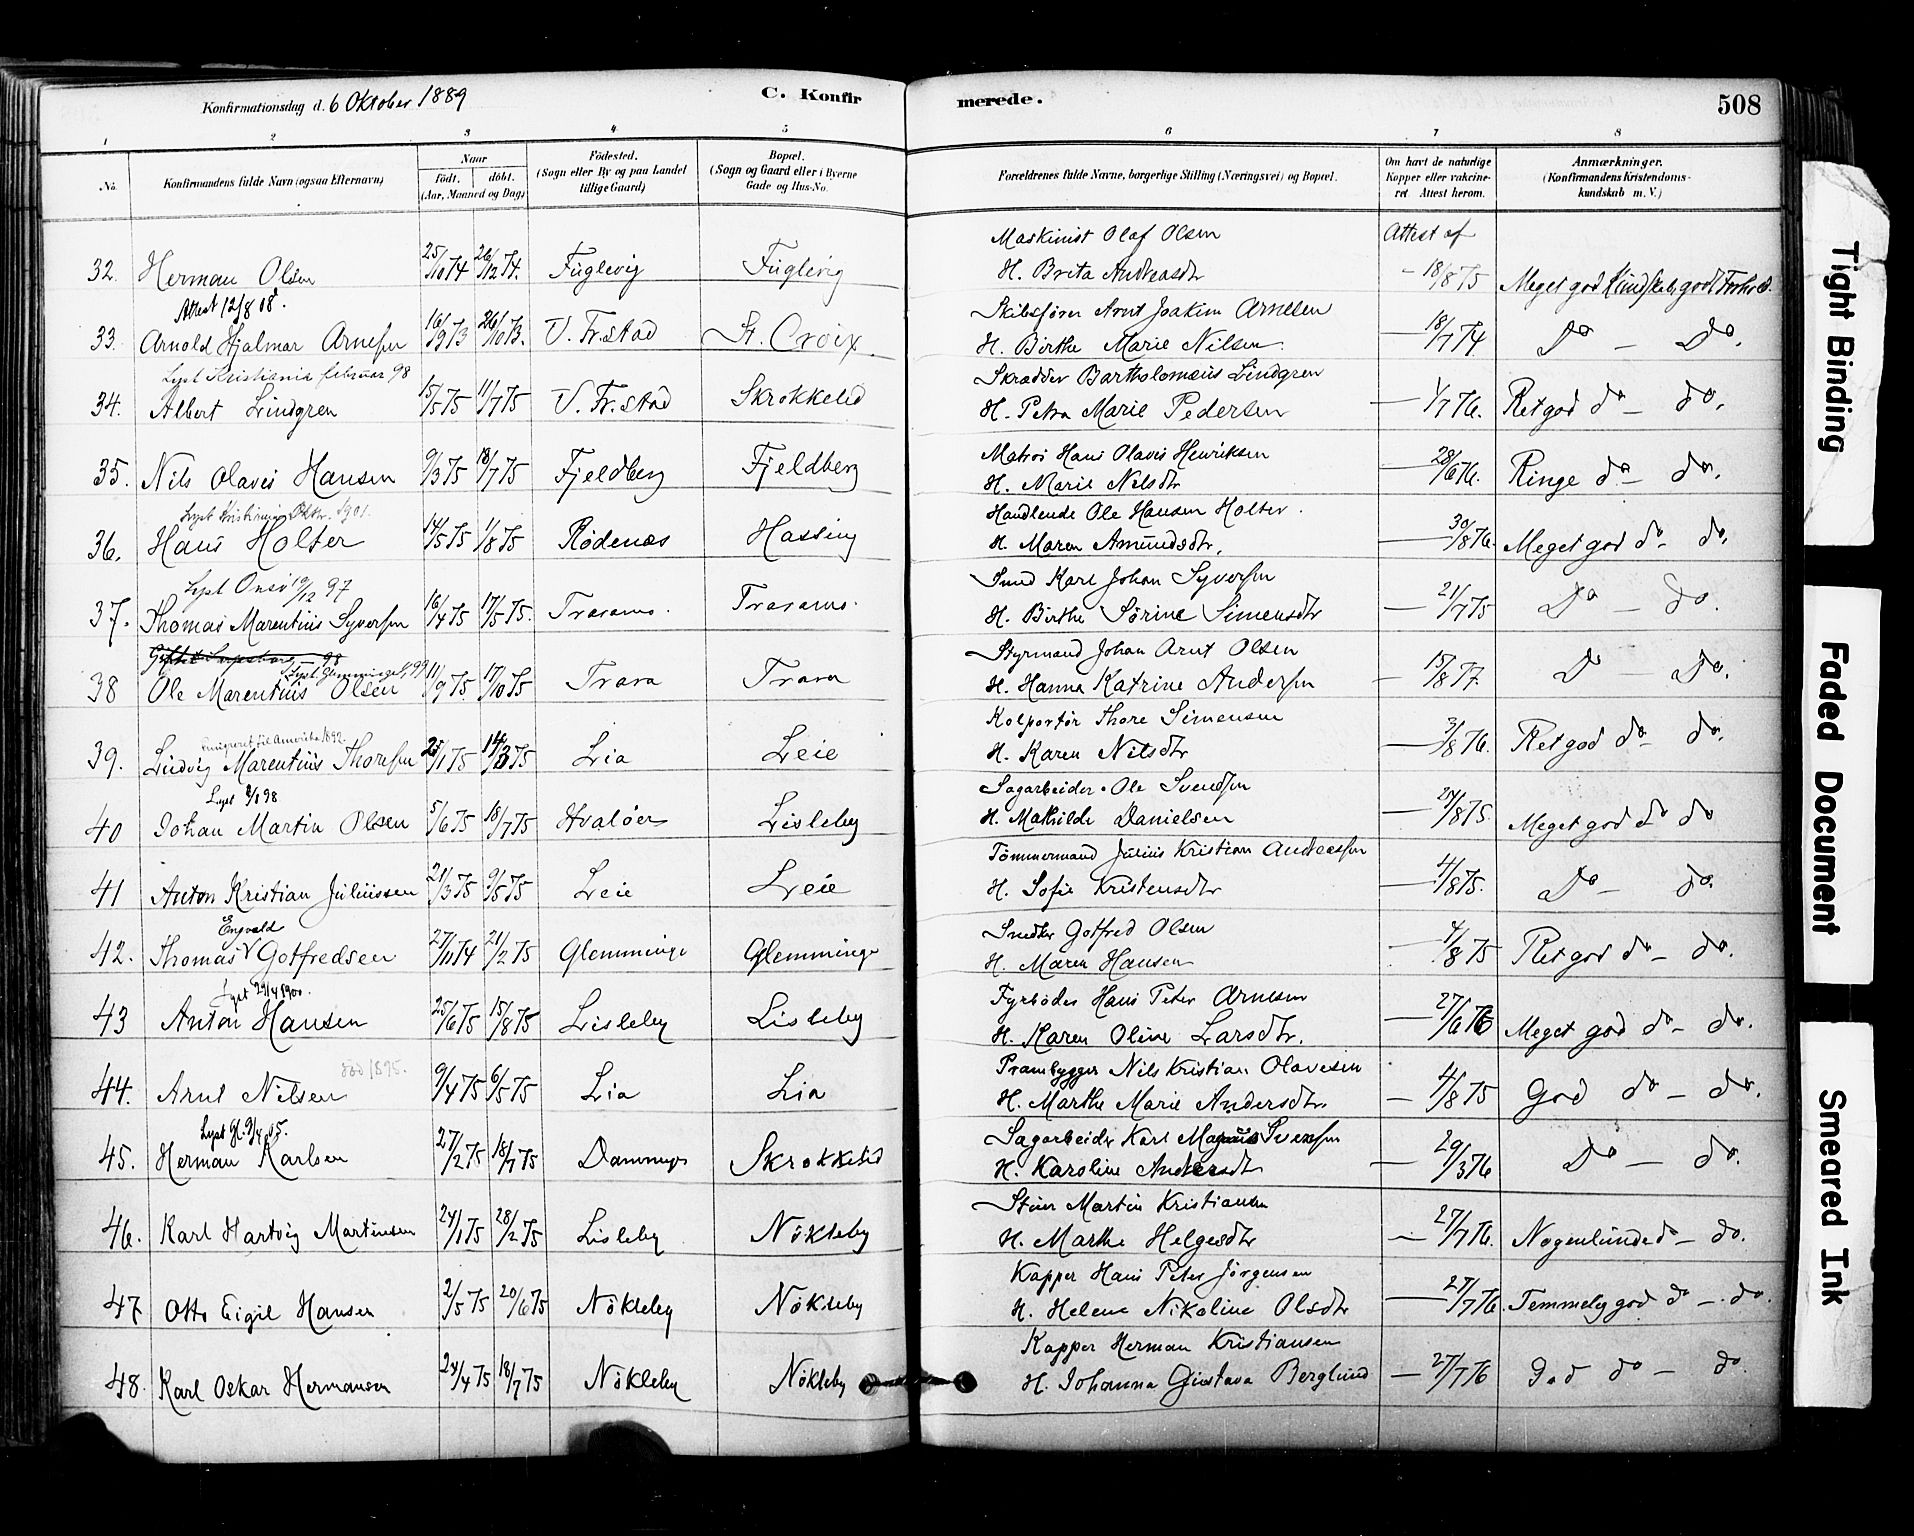 Konfirmationsdag d. 6 Oktober 1889
C. Konfir
merede.
508
1 2 3 4 5 6 7 8
No.
Konfirmandens fulde Navn (ogsaa Efternavn)
Naar
født. døbt.
(Aar, Maaned og Dag)
Fødested.
(Sogn eller By og paa Landet
tillige Gaard)
Bopæl.
(Sogn og Gaard eller i Byerne
Gade og Hus-No.
Forældrenes fulde Navne, borgerlige Stilling (Næringsvei) og Bopæl.
Om havt de naturlige
Kopper eller vakcine-
ret. Attest herom.
Anmærkninger.
(Konfirmandens Kristendoms-
kundskab m. V.)
Maskinist Olaf Olsen Attest af
32. Herman Olsen 25/10 74 26/12 74. Fuglevig Fuglevig H. Brita Andreasdtr - 18/8 75 Meget god Kundskab godt Forhold.
Attest 12/8 08. Skibsfører Arnt Joakim Arnesen
33. Arnold Hjalmar Arnesen 16/9 73 26/10 73. V. Fr.stad St. Croix H. Birthe Marie Nilsen. — 18/7 74 Do — Do.
Lyst Kristiania februar 98 Skrædder Bartholomæus Lindgren
34. Albert Lindgren 15/5 75 11/7 75 V. Fr.stad Skrokkelid H. Petra Marie Pedersen — 1/7 76. Ret god do — do.
Matros Hans Olavis Henriksen
35. Nils Olavis Hansen 9/3 75 18/7 75 Fjeldberg Fjeldberg H. Marie Nilsdtr — 28/6 76. Ringe do — do.
Lyst Kristiania Oktbr. 1901. Handlende Ole Hansen Holter.
36. Hans Holter 14/5 75 1/8 75 Rødenæs Hassing H. Maren Amundsdtr. — 30/8 76. Meget god do — do.
Lyst Onsø 19/12 97 Smed Karl Johan Syversen
37. Thomas Marentius Syversen 16/4 75 17/5 75. Traraens. Traraens. H. Birthe Sørine Simensdtr — 21/7 75 Do — do.
98 Lyst Glemminge 1/1 99 Styrmand Johan Arnt Olsen
38 Ole Marentius Olsen 11/9 75. 17/10 75 Trara Trara H. Hanna Katrine Andersen — 15/8 77. Do — Do.
Emigreret til Amerika 1892. Kolportør Thore Simensen
39. Ludvig Marentius Thoresen 25/1 75 14/3 75 Lia Leie H. Karen Nilsdtr — 3/8 76. Ret god do — do.
Lyst 9/1 98 Sagarbeider Ole Svendsen
40 Johan Martin Olsen 5/6 75 18/7 75 Hvaløer Lisleby H. Mathilde Danielsen — 24/8 75. Meget god do do
Tømmermand Julius Kristian Andreassen
41 Anton Kristian Juliussen 21/3 75 9/5 75 Leie Leie H. Sofie Kristensdtr — 4/8 75. Do — do.
Engvald Snedker Gotfred Olsen
42. Thomas Gotfredsen 27/11 74 21/2 75 Glemminge Glemminge H. Maren Hansen — 4/8 75 Ret god do — do.
Lyst 29/4 1900. Fyrbøder Hans Peter Arnesen
43 Anton Hansen 25/6 75 15/8 75 Lisleby Lisleby H. Karen Oline Larsdtr. — 27/6 76 Meget god do — do.
død 1895. Prambygger Nils Kristian Olavesen
44. Arnt Nilsen 9/4 75 6/5 75 Lia Lia H. Marthe Marie Andersdtr. — 4/8 75 God do — do.
Lyst Gl. 9/4 05. Sagarbeider Karl Magnus Svensen
45. Herman Karlsen 27/2 75 18/7 75 Dammyr Skrokkelid H. Karoline Andersdtr — 29/3 76 Do — do.
Stuer Martin Kristiansen
46. Karl Hartvig Martinsen 24/1 75 28/2 75 Lisleby Nökleby H. Marthe Helgesdtr — 27/7 76. Nogenlunde do — do.
Kapper Hans Peter Jörgensen
47 Otto Eigil Hansen 2/5 75 20/6 75 Nökleby Nökleby H. Helene Nikoline Olsdtr — 27/7 76. Temmelig god do — do.
Kapper Herman Kristiansen
48. Karl Oskar Hermansen 24/4 75 18/7 75 Nökleby Nökleby H. Johanna Gustava Berglund — 27/7 76 God do — do.
Tight Binding
Faded Document
Smeared Ink